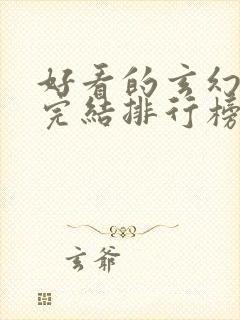 好看的玄幻
完結排行榜
玄爷